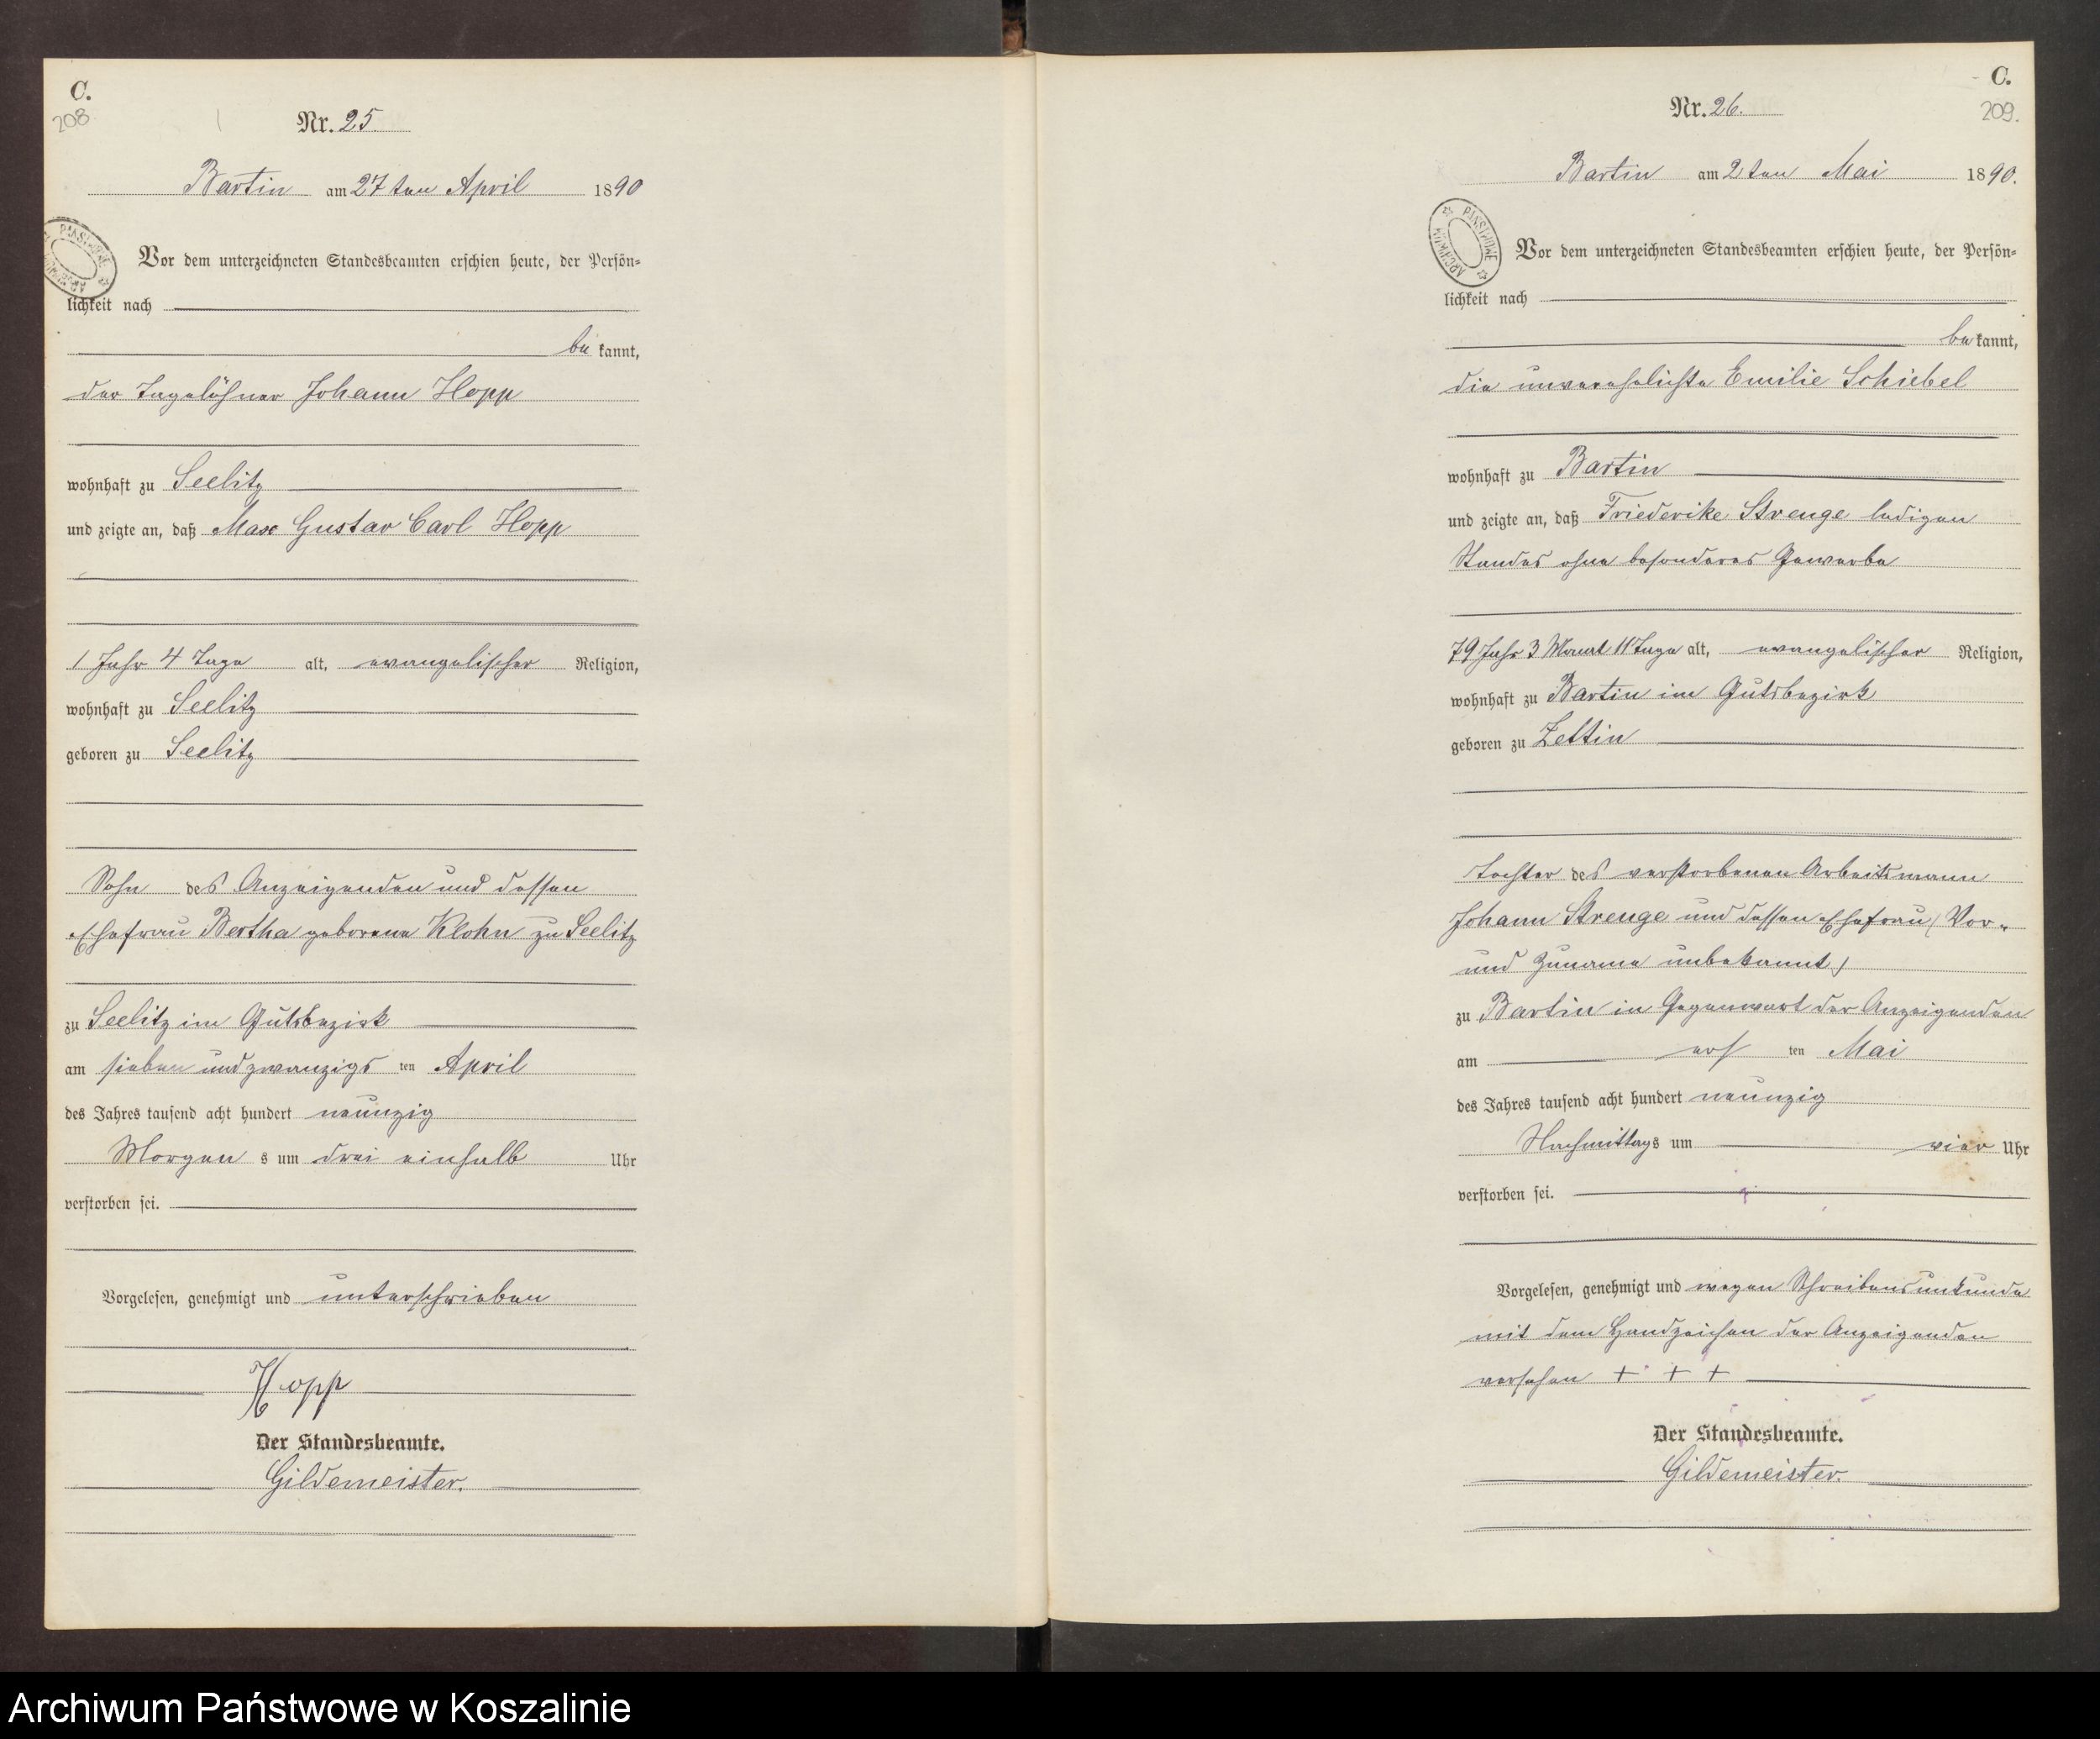 C.
208
Nr. 25.
Bartin am 27 ten April 1890
Vor dem unterzeichneten Standesbeamten erschien heute, der Persön-
lichkeit nach
be kannt,
der Tagelöhner Johann Hopp
wohnhaft zu Seelitz
und zeigte an, daß Max Gustav Carl Hopp
1 Jahr 4 Tage alt, evangelischer Religion,
wohnhaft zu Seelitz
geboren zu Seelitz
Sohn des Anzeigenden und dessen
Ehefrau Bertha geborene Klohn zu Seelitz
zu Seelitz im Gutsbezirk
am sieben und zwanzigs ten April
des Jahres tausend acht hundert neunzig
Morgen s um drei einhalb Uhr
verstorben sei.
Vorgelesen, genehmigt und unterschrieben
Hopp
Der Standesbeamte.
Gildemeister.
C.
209.
Nr. 26.
Bartin am 2 ten Mai 1890.
PAŃSTWOWE ARCHIWUM
Vor dem unterzeichneten Standesbeamten erschien heute, der Persön-
lichkeit nach
be kannt,
die unverehelichte Emilie Schiebel
wohnhaft zu Bartin
und zeigte an, daß Friederike Strenge ledigen
Standes ohne besonderes Gewerbe
79 Jahr 3 Monat 11 Tage alt, evangelischer Religion,
wohnhaft zu Bartin im Gutsbezirk
geboren zu Zettin
Tochter des verstorbenen Arbeitsmann
Johann Strenge und dessen Ehefrau (Vor-
und Zuname unbekannt)
zu Bartin in Gegenwart der Anzeigenden
am ers ten Mai
des Jahres tausend acht hundert neunzig
Nachmittags um vier Uhr
verstorben sei.
Vorgelesen, genehmigt und wegen Schreibensunkunde
mit dem Handzeichen der Anzeigenden
versehen + + +
Der Standesbeamte.
Gildemeister.
Archiwum Państwowe w Koszalinie